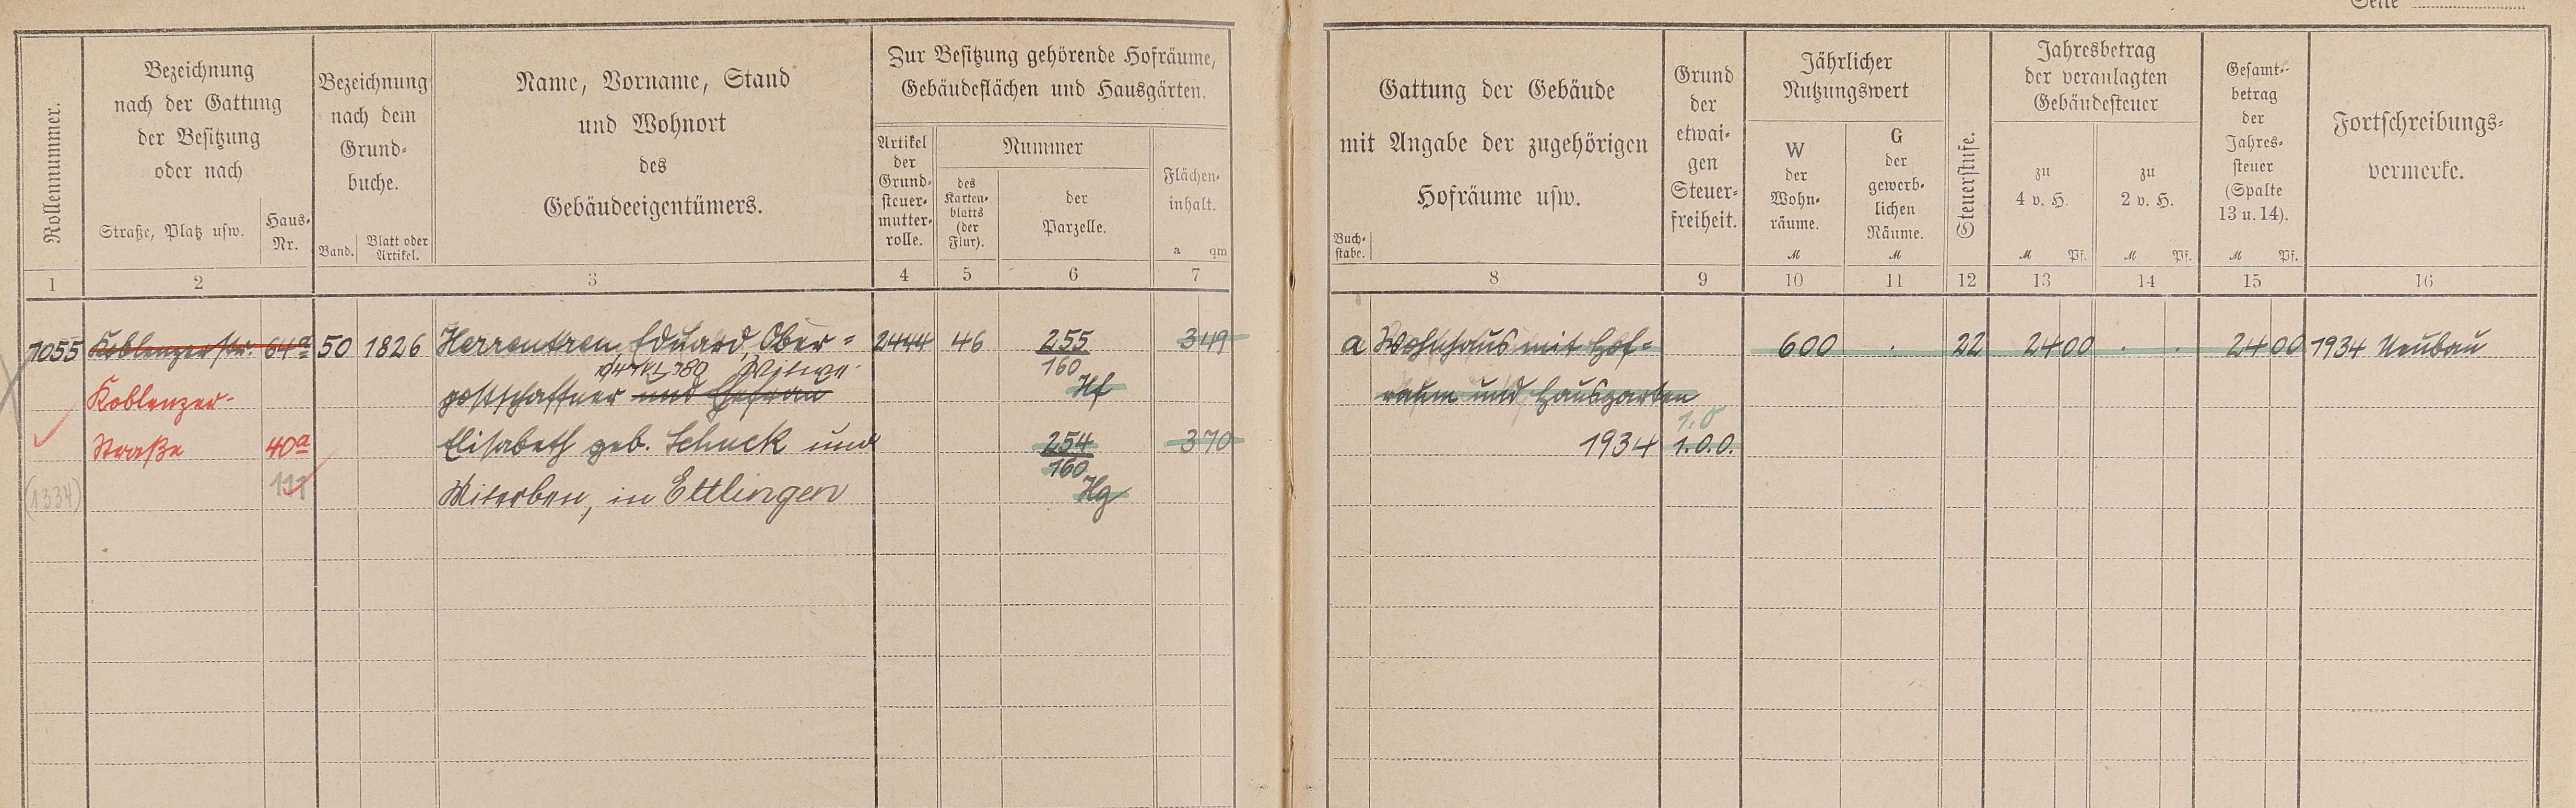 Seite
Rollennummer.
Bezeichnung
nach der Gattung
der Besitzung
oder nach
Straße, Platz usw.
Haus-
Nr.
Bezeichnung
nach dem
Grund-
buche.
Band.
Blatt oder
Artikel.
Name, Vorname, Stand
und Wohnort
des
Gebäudeeigentümers.
Zur Besitzung gehörende Hofräume,
Gebäudeflächen und Hausgärten.
Artikel
der
Grund-
steuer-
mutter-
rolle.
Nummer
des
Karten-
blatts
(der
Flur).
der
Parzelle.
Flächen-
inhalt.
a qm
Gattung der Gebäude
mit Angabe der zugehörigen
Hofräume usw.
Buch-
stabe.
Grund
der
etwai-
gen
Steuer-
freiheit.
Jährlicher
Nutzungswert
W
der
Wohn-
räume.
M
G
der
gewerb-
lichen
Räume.
M
Steuerstufe.
Jahresbetrag
der veranlagten
Gebäudesteuer
zu
4 v. H.
M Pf.
zu
2 v. H.
M Pf.
Gesamt-
betrag
der
Jahres-
steuer
(Spalte
13 u. 14).
M Pf.
Fortschreibungs-
vermerke.
1 2 3 4 5 6 7 8 9 10 11 12 13 14 15 16
1055 Koblenzerstr. 64a 50 1826 Eduard, Ober- 2444 46 255 349 a Wohnhaus mit Hof- 600 . 22 24 00 . . 24 00 1934 Neubau
160
Witwe
Koblenzer- postschaffner und Ehefrau Hf raum und Hausgarten
1.0
Straße 40a Elisabeth geb. Schuck und 254 370 1934 1.0.0.
160
(1334) 111 Miterben, in Ettlingen Hg